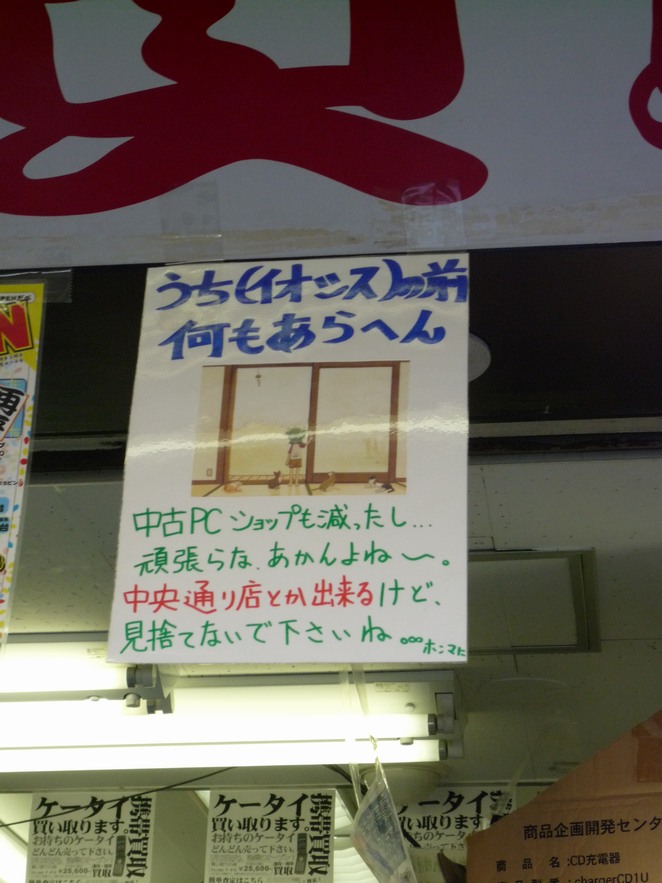 うち(イオシス)の前
何もあらへん
中古PCショップも減ったし...
頑張らな、あかんよね〜。
中央通り店とか出来るけど、
見捨てないで下さいね。。。ホンマに
ケータイ
買い取ります。
お持ちのケータイ
どんどん売って下さい。
携帯買取
¥25,600-
ケータイ
買い取ります。
お持ちのケータイ
どんどん売って下さい。
携帯買取
¥25,600-
簡単査定はこちら
ケータイ
買い取ります。
商品企画開発センタ
商品名:CD充電器
chargerCD1U